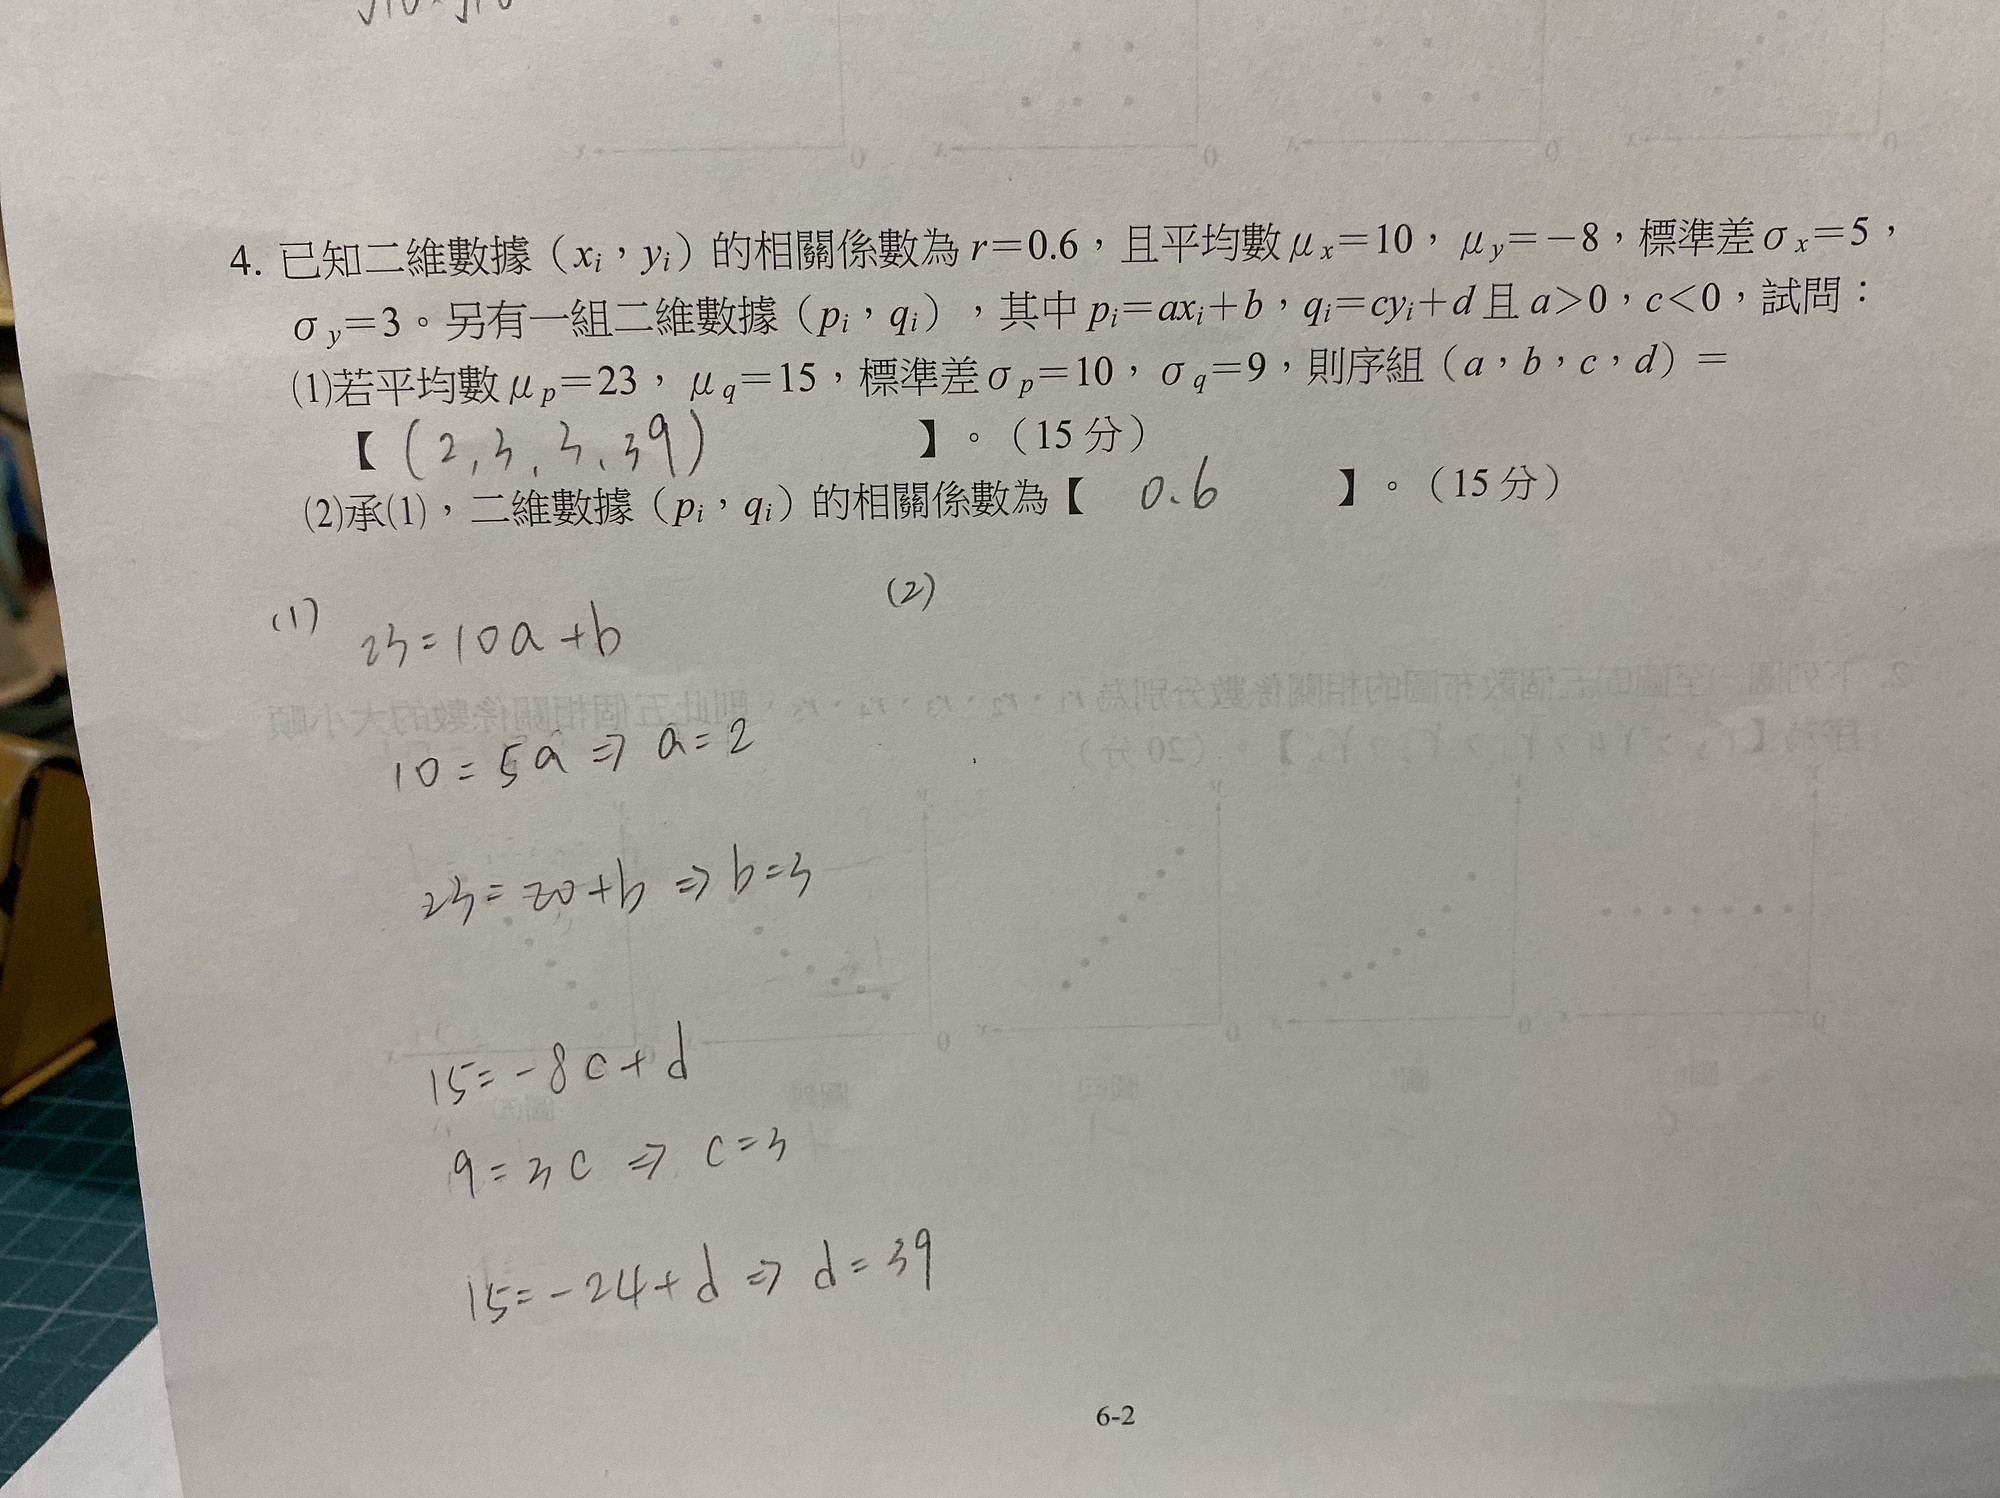 4. 已知二維數據（xi，yi）的相關係數為 r＝0.6，且平均數 μx＝10，μy＝－8，標準差 σx＝5，
σy＝3。另有一組二維數據（pi，qi），其中 pi＝axi＋b，qi＝cyi＋d 且 a>0，c<0，試問：
⑴若平均數 μp＝23，μq＝15，標準差 σp＝10，σq＝9，則序組（a，b，c，d）＝
【 (2,3,3,39) 】。（15 分）
⑵承⑴，二維數據（pi，qi）的相關係數為【 0.6 】。（15 分）
(1)
(2)
23=10a+b
10=5a⇒a=2
23=20+b⇒b=3
15=-8c+d
9=3c⇒c=3
15=-24+d⇒d=39
6-2